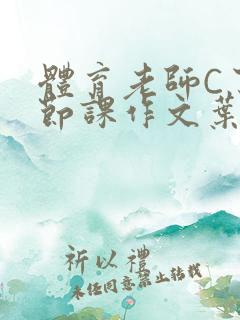 體育老師C
節課作文葉
祈以禮
未經同意禁止轉載